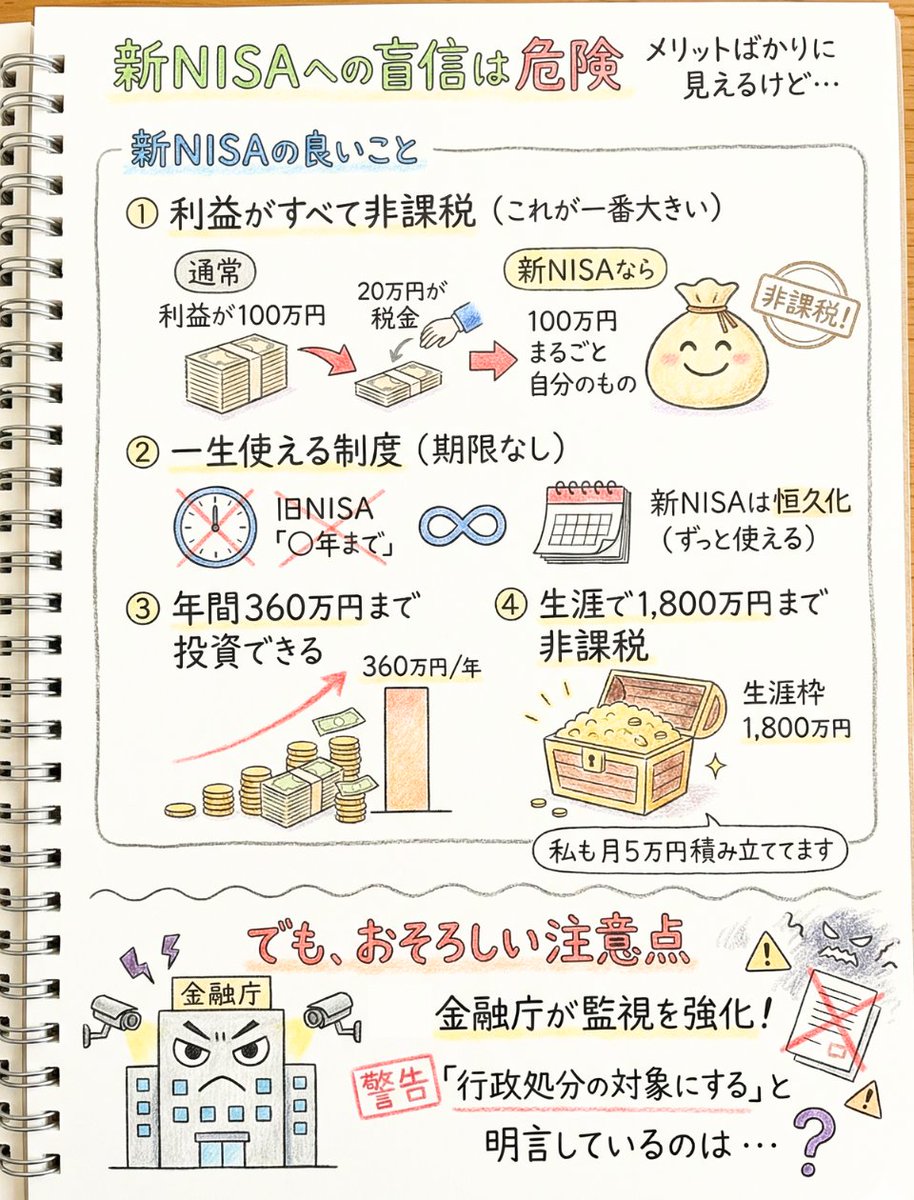 新NISAへの盲信は危険
メリットばかりに
見えるけど…
新NISAの良いこと
① 利益がすべて非課税（これが一番大きい）
通常
利益が100万円
20万円が
税金
新NISAなら
100万円
まるごと
自分のもの
非課税！
② 一生使える制度（期限なし）
旧NISA
「〇年まで」
新NISAは恒久化
（ずっと使える）
③ 年間360万円まで
投資できる
360万円/年
④ 生涯で1,800万円まで
非課税
生涯枠
1,800万円
私も月5万円積み立ててます
でも、おそろしい注意点
金融庁
金融庁が監視を強化！
警告
「行政処分の対象にする」と
明言しているのは…
？